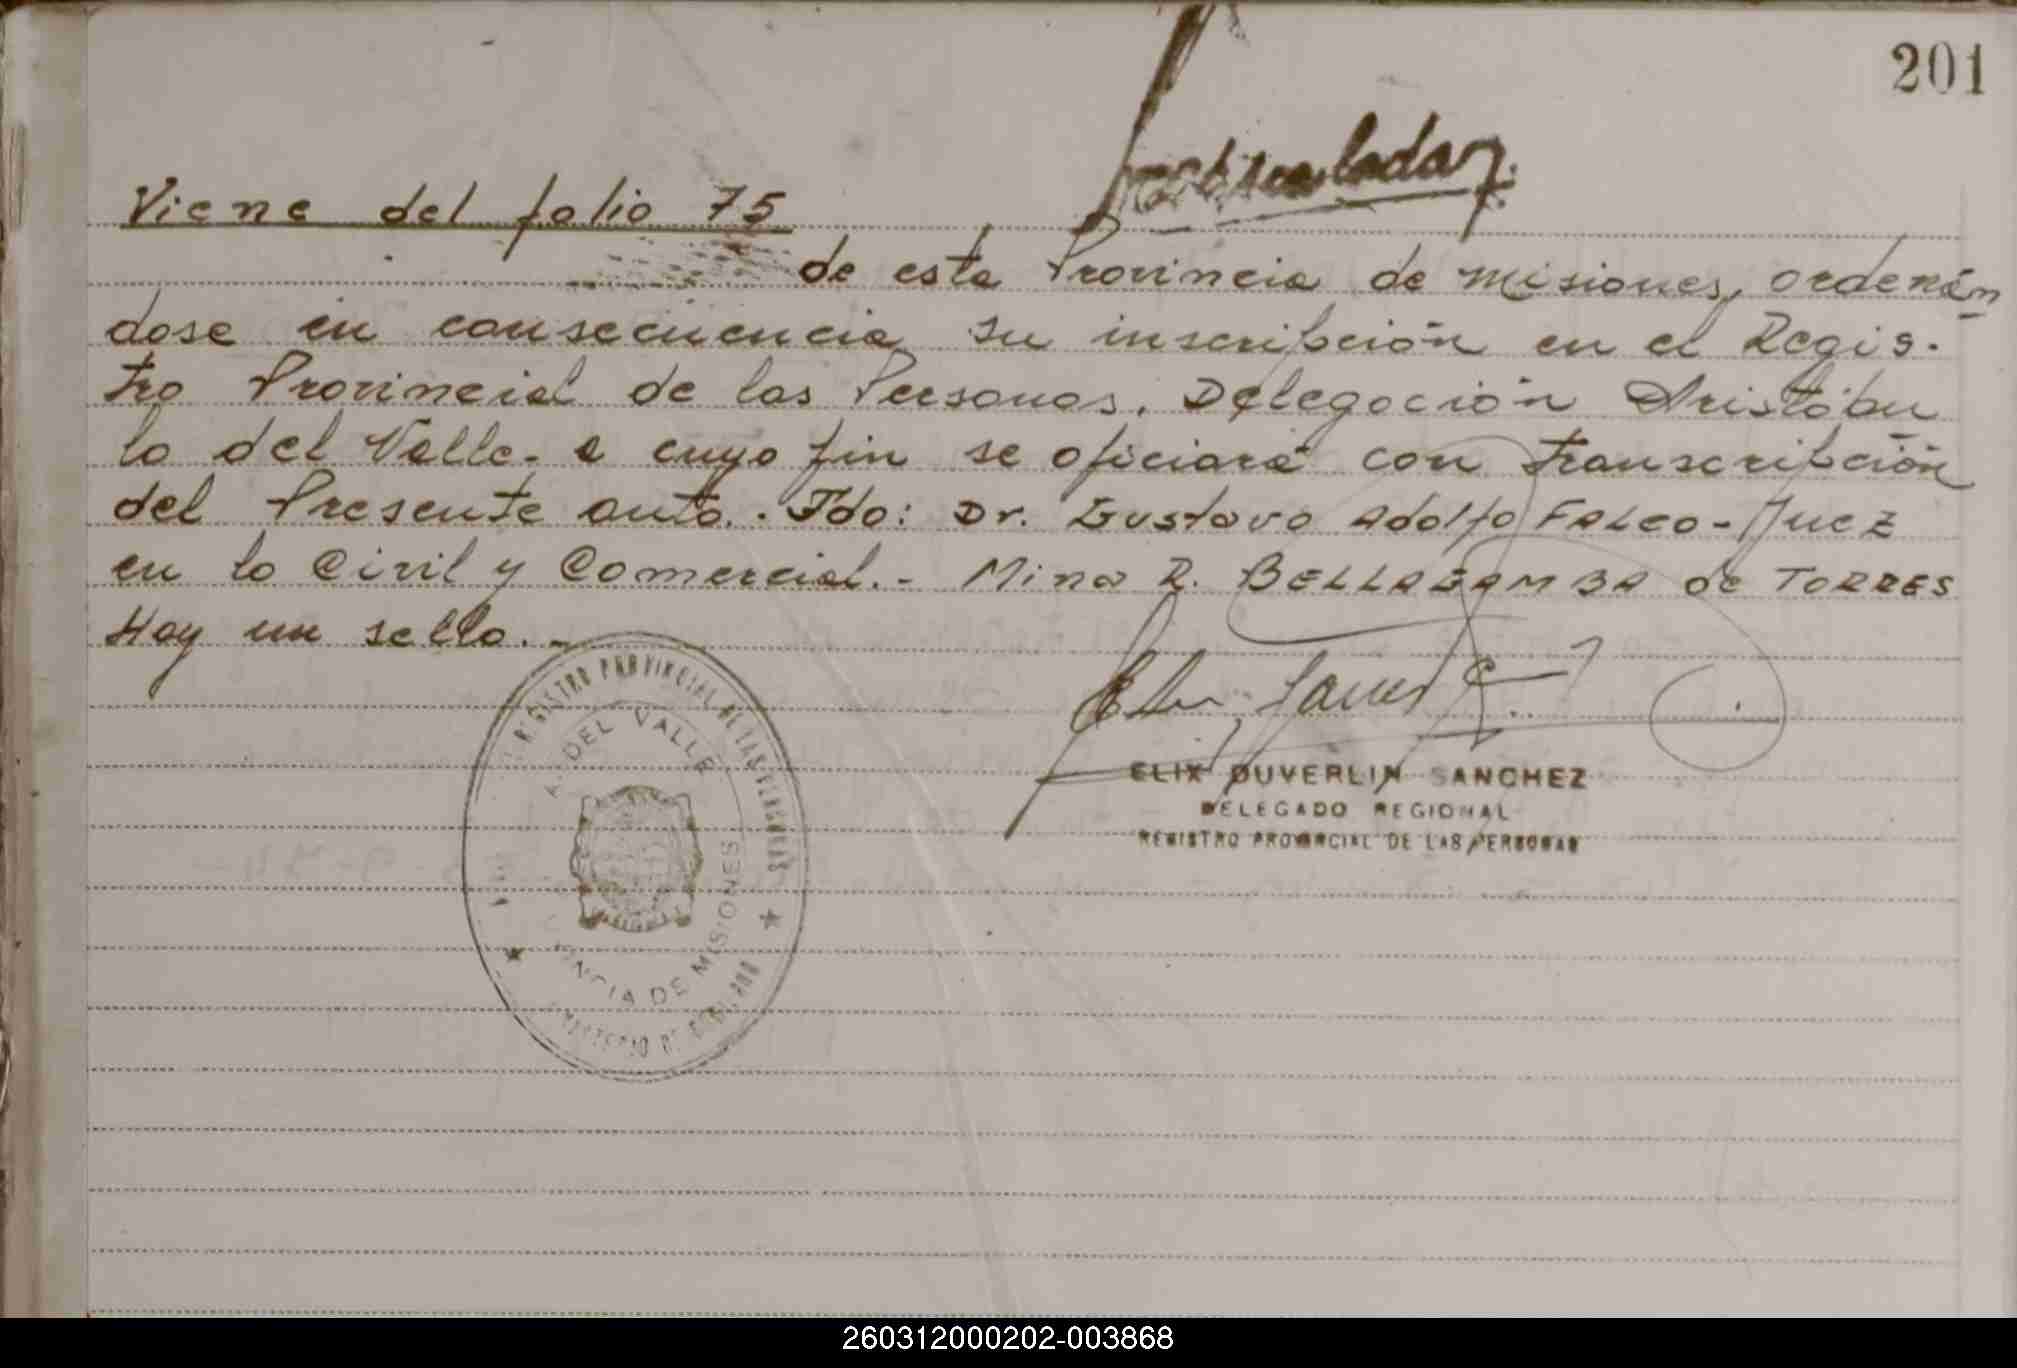 201
Viene del folio 75
de esta Provincia de Misiones, ordenán
dose en consecuencia su inscripción en el Regis-
tro Provincial de las Personas. Delegación Aristóbu
lo del Valle- a cuyo fin se oficiará con transcripción
del Presente auto.- Fdo: Dr. Gustavo Adolfo FALCO-Juez
en lo Civil y Comercial.- Mina R. BELLAGAMBA de TORRES
Hay un sello.-
REGISTRO PROVINCIAL DE LAS PERSONAS
A. DEL VALLE
DE MISIONES
ELIX DUVERLIN SANCHEZ
DELEGADO REGIONAL
REGISTRO PROVINCIAL DE LAS PERSONAS
260312000202-003868